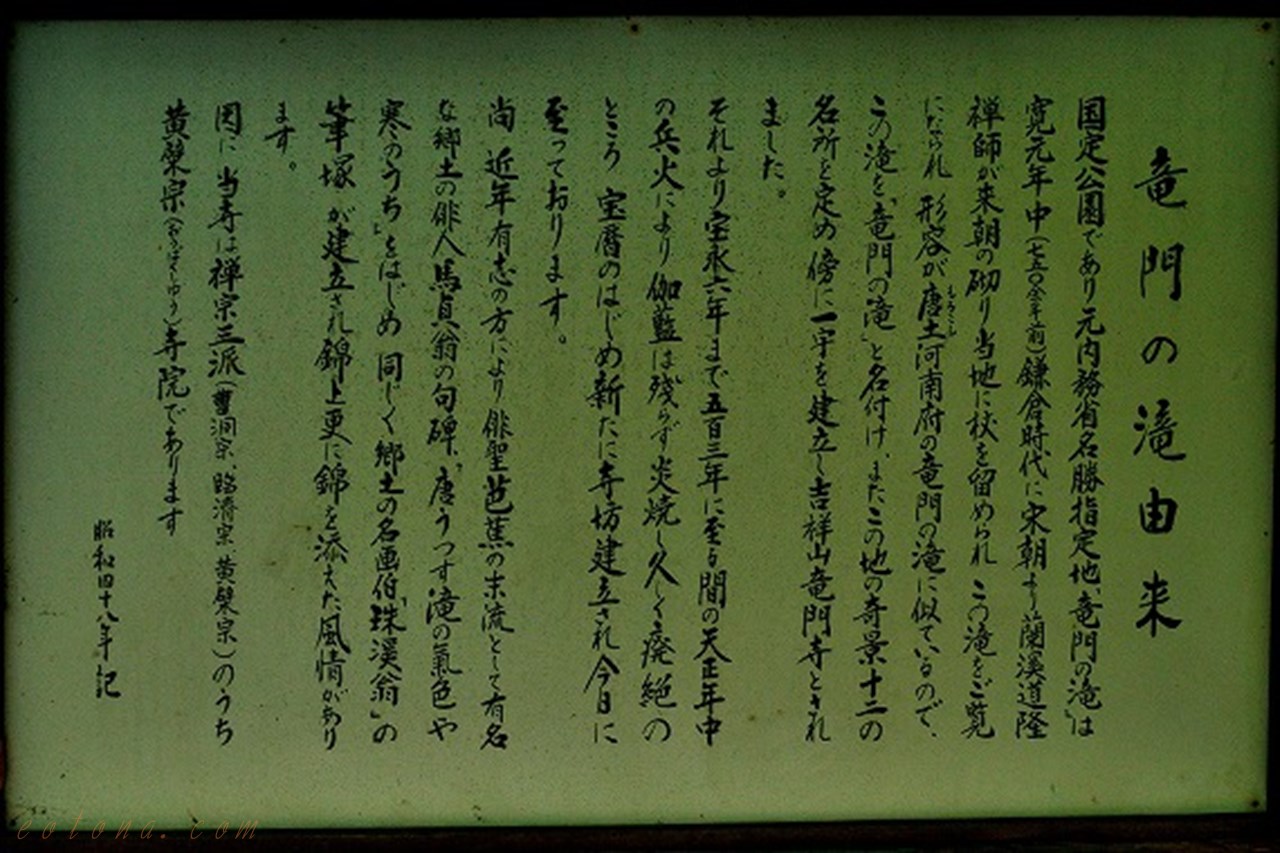 竜門の滝由来
国定公園であり元内務省名勝指定地、竜門の滝」は
寛元年中(七五〇余年前)鎌倉時代に宋朝より蘭溪道隆
禅師が来朝の砌り当地に杖を留められ この滝をご覧
になられ 形容が唐土河南府の竜門の滝に似ているので、
もろこし
この滝を「竜門の滝」と名付け、またこの地の奇景十二の
名所を定め傍に一宇を建立し吉祥山竜門寺とされ
ました。
それより宝永六年まで五百三年に至る間の天正年中
の兵火により 伽藍は残らず炎焼し久しく廃絶の
ところ 宝暦のはじめ新たに寺坊建立され今日に
至っております。
尚 近年有志の方により俳聖芭蕉の末流として有名
な郷土の俳人馬貞翁の句碑、「唐うつす滝の氣色や
寒のうち」をはじめ 同じく郷土の名画伯「珠溪翁」の
筆塚が建立され錦上更に錦を添えた風情があり
ます。
因に 当寺は禅宗三派(曹洞宗、臨済宗、黄檗宗)のうち
黄檗宗(おうばくしゆう)寺院であります
昭和四十八年記
eotona.com